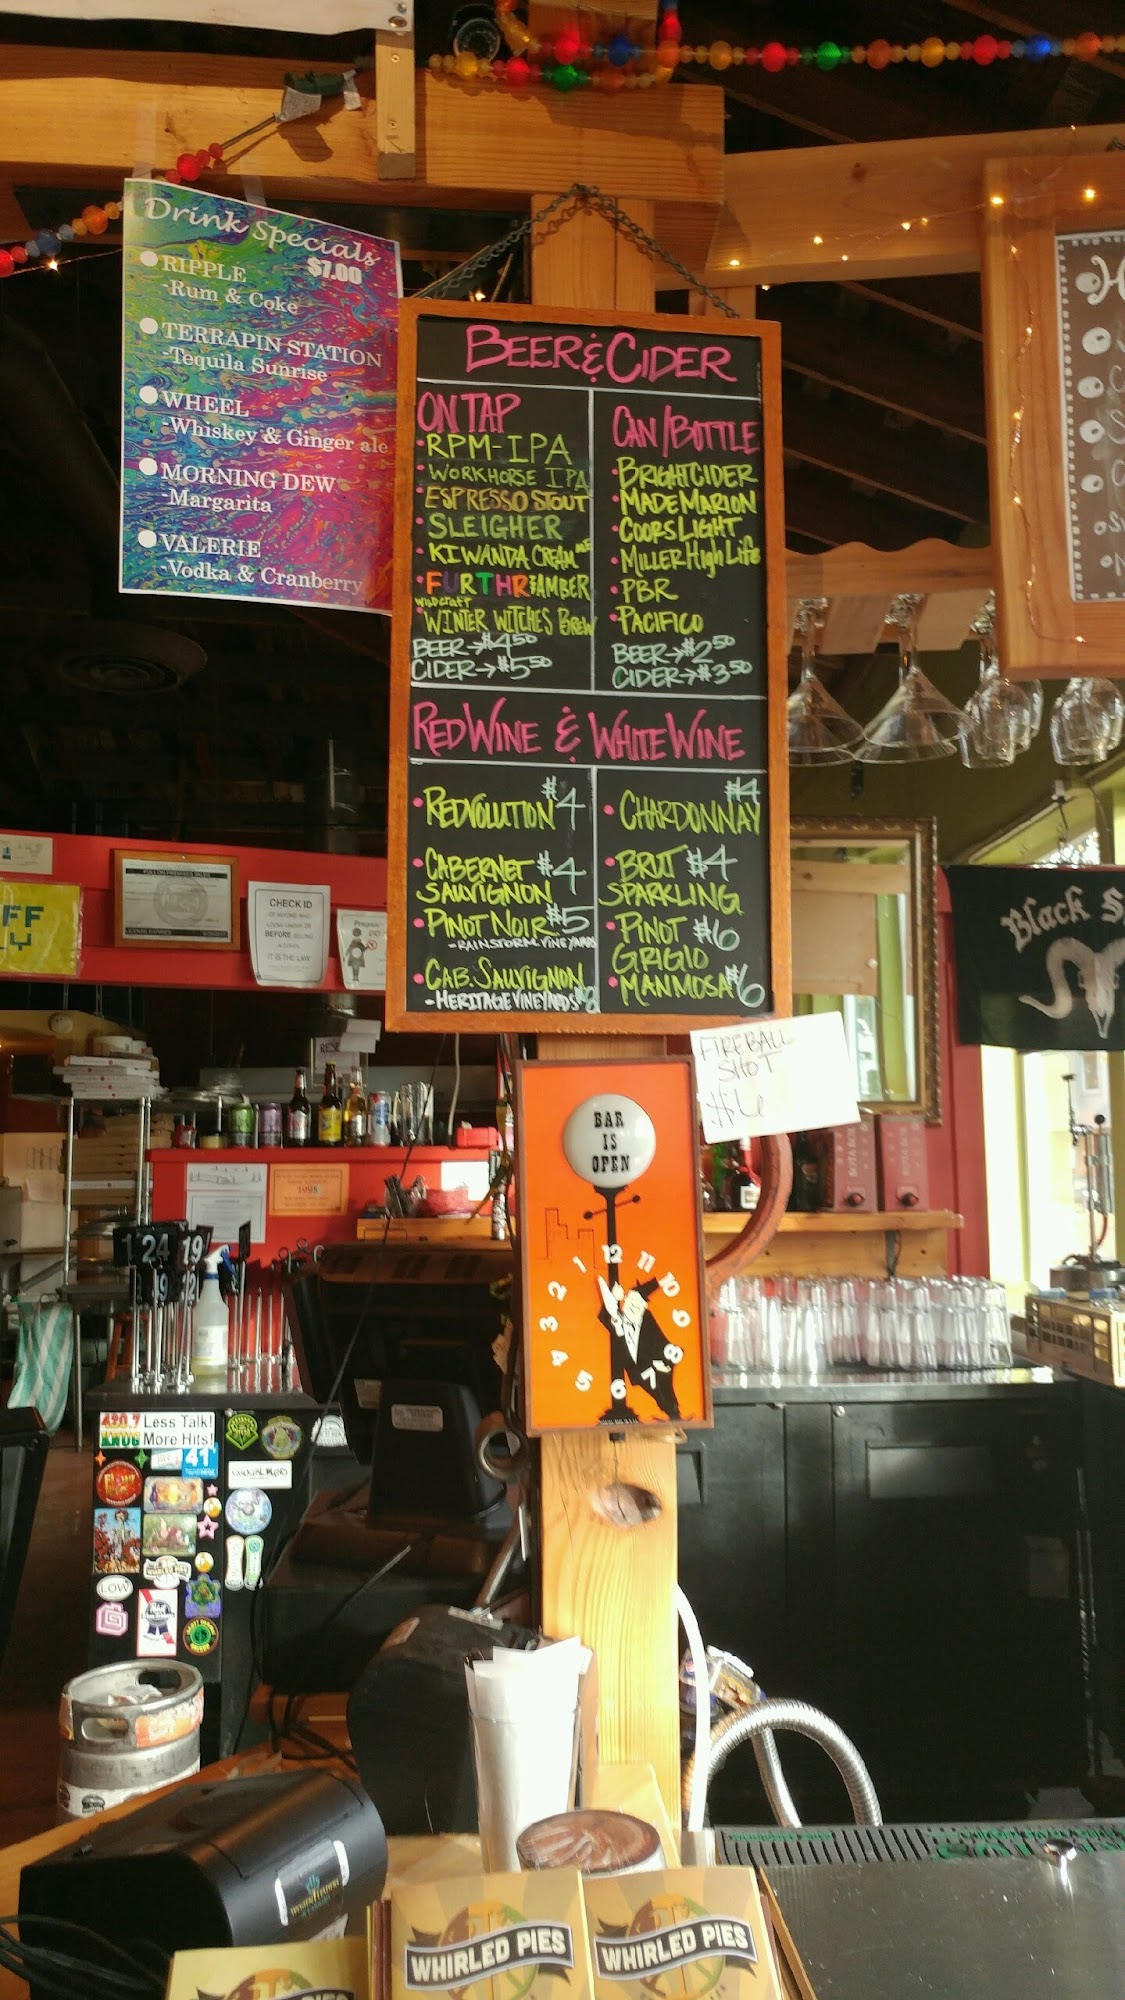 Drink Specials
$7.00
RIPPLE
-Rum & Coke
TERRAPIN STATION
-Tequila Sunrise
WHEEL
-Whiskey & Ginger ale
MORNING DEW
-Margarita
VALERIE
-Vodka & Cranberry
BEER & CIDER
ON TAP
RPM-IPA
WORKHORSE IPA
ESPRESSO STOUT
SLEIGHER
KIWANDA CREAM ALE
FURTHR AMBER
WILDCRAFT
WINTER WITCHES BREW
BEER→$4.50
CIDER→$5.50
CAN/BOTTLE
BRIGHTCIDER
MADE MARION
COORS LIGHT
MILLER High Life
PBR
PACIFICO
BEER→$2.50
CIDER→$3.50
RED WINE & WHITE WINE
REDVOLUTION $4
CABERNET $4
SAUVIGNON
PINOT NOIR $5
-RAINSTORM VINEYARDS
CAB. SAUVIGNON
-HERITAGE VINEYARDS $8
$4
CHARDONNAY
BRUT $4
SPARKLING
PINOT $6
GRIGIO
MANMOSA $6
FIREBALL
SHOT
$6
BAR
IS
OPEN
12
11
10
9
8
7
6
5
4
3
2
1
CHECK ID
BEFORE
IT IS THE LAW
Black S
FF
LY
1998
24
19
420.7
KNUG
Less Talk!
More Hits!
41
LOW
WHIRLED PIES
WHIRLED PIES